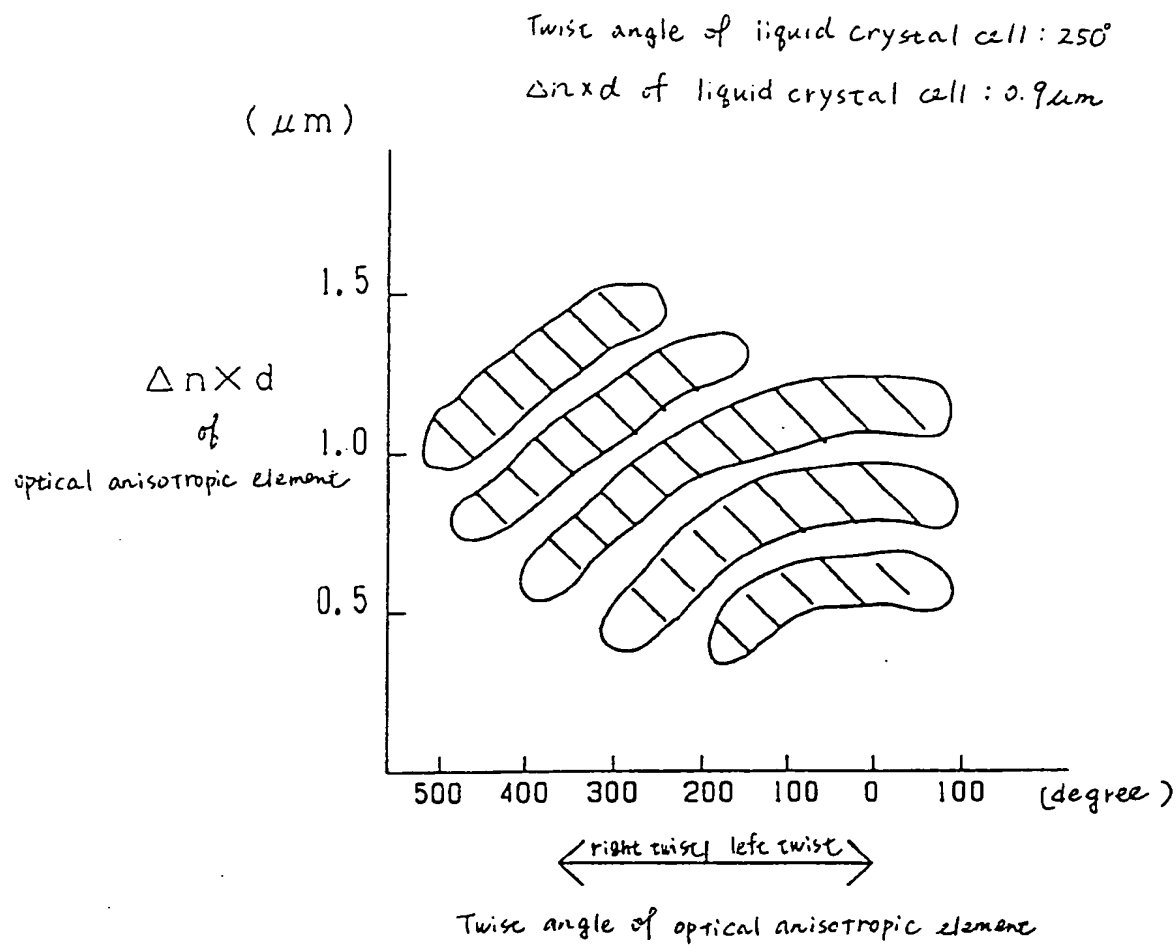 Twist angle of liquid crystal cell : 250°
Δn×d of liquid crystal cell : 0.9μm
(μm)
1.5
Δn×d
of
optical anisotropic element
1.0
0.5
500 400 300 200 100 0 100 (degree)
right twist left twist
Twist angle of optical anisotropic element